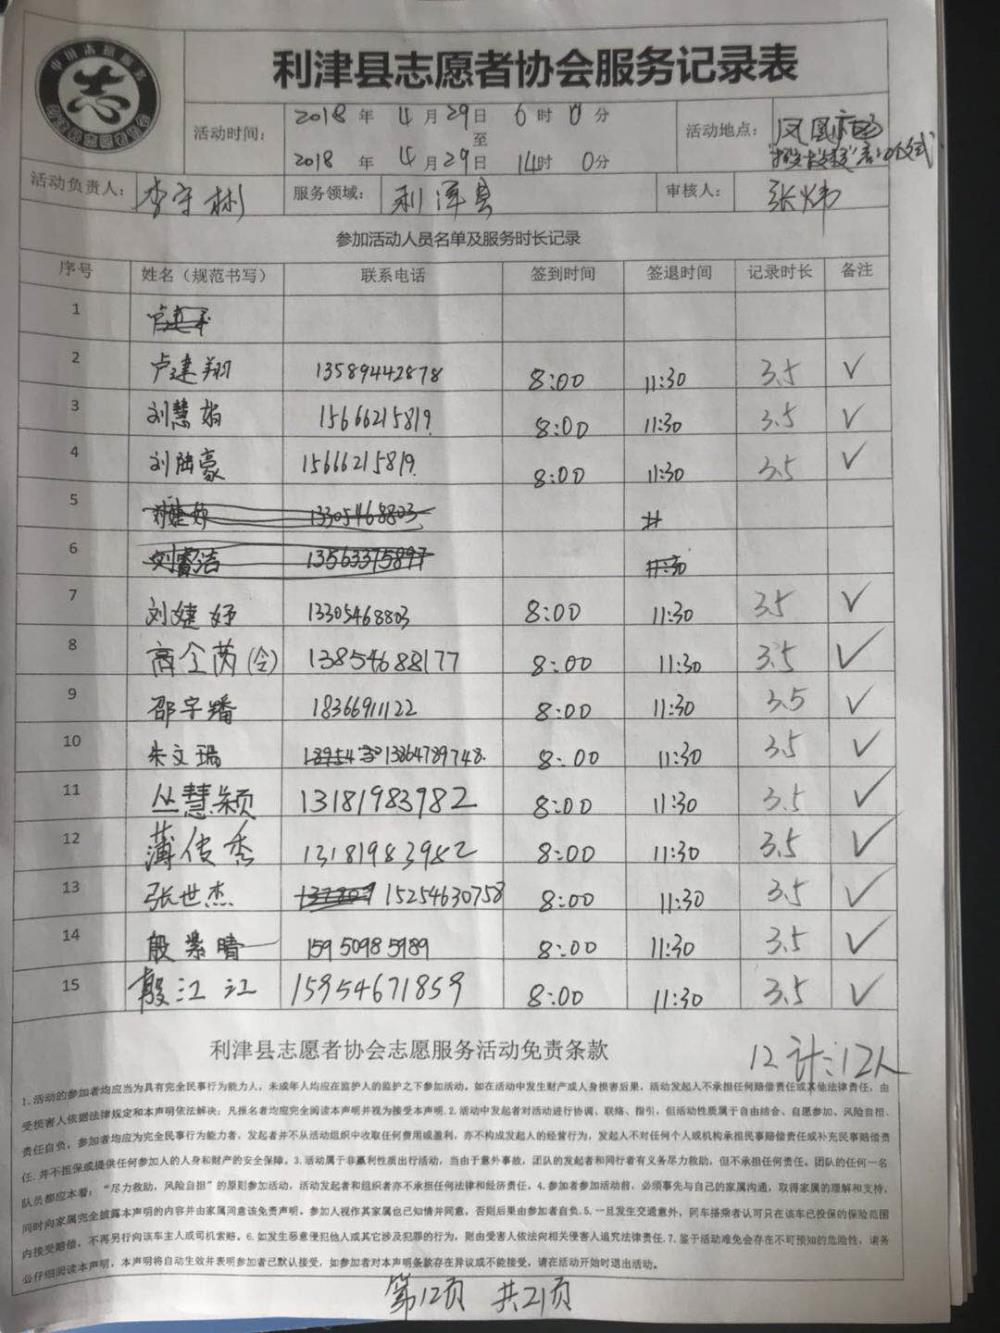 利津县志愿者协会服务记录表
活动时间： 2018 年 4 月 29 日 6 时 0 分
至
2018 年 4 月 29 日 14 时 0 分
活动地点： 凤凰广场
活动负责人： 李守彬 服务领域： 利津县 审核人： 张炜
参加活动人员名单及服务时长记录
序号 姓名（规范书写） 联系电话 签到时间 签退时间 记录时长 备注
1
2 卢建翔 13589442878 8:00 11:30 3.5 √
3 刘慧娟 15666215819. 8:00 11:30 3.5 √
4 刘陆豪 15666215819. 8:00 11:30 3.5 √
5 13305468803
6 刘睿洁 13563375897 11:30
7 刘婕妤 13305468803 8:00 11:30 3.5 √
8 商仝芮(仝) 13854688177 8:00 11:30 3.5 √
9 邵宇璠 18366911122 8:00 11:30 3.5 √
10 朱文瑞 13864789748. 8:00 11:30 3.5 √
11 丛慧颖 13181983982 8:00 11:30 3.5 √
12 薄俊秀 13181983982 8:00 11:30 3.5 √
13 张世杰 15254630758 8:00 11:30 3.5 √
14 殷紫晴 15950985989 8:00 11:30 3.5 √
15 殷江江 15954671859 8:00 11:30 3.5 √
利津县志愿者协会志愿服务活动免责条款
12 计:12人
1.活动的参加者均应当为具有完全民事行为能力人，未成年人均应在监护人的监护之下参加活动。如在活动中发生财产或人身损害后果，活动发起人不承担任何赔偿责任或其他法律责任，由
受损害人依据法律规定和本声明依法解决；凡报名者均应完全阅读本声明并视为接受本声明.2.活动中发起者对活动进行协调、联络、指引，但活动性质属于自由结合、自愿参加、风险自担、
责任自负，参加者均应为完全民事行为能力者，发起者并不从活动组织中收取任何费用或盈利，亦不构成发起人的经营行为，发起人不对任何个人或机构承担民事赔偿责任或补充民事赔偿责
任.并不担保或提供任何参加人的人身和财产的安全保障。3.活动属于非赢利性质出行活动，当由于意外事故，团队的发起者和同行者有义务尽力救助，但不承担任何责任。团队的任何一名
队员都应本着：“尽力救助，风险自担”的原则参加活动，活动发起者和组织者亦不承担任何法律和经济责任。4.参加者参加活动前，必须事先与自己的家属沟通，取得家属的理解和支持，
同时向家属完全披露本声明的内容并由家属同意该免责声明。参加人视作其家属也已知情并同意，否则后果由参加者自负.5.一旦发生交通意外，同车搭乘者认可只在该车已投保的保险范围
内接受赔偿，不再另行向该车主人或司机索赔。6.如发生恶意侵犯他人或其它涉及犯罪的行为，则由受害人依法向相关侵害人追究法律责任.7.鉴于活动难免会存在不可预知的危险性，请务
必仔细阅读本声明，本声明将自动生效并表明参加者已默认接受，如参加者对本声明条款存在异议或不能接受，请在活动开始时退出活动。
第12页 共21页